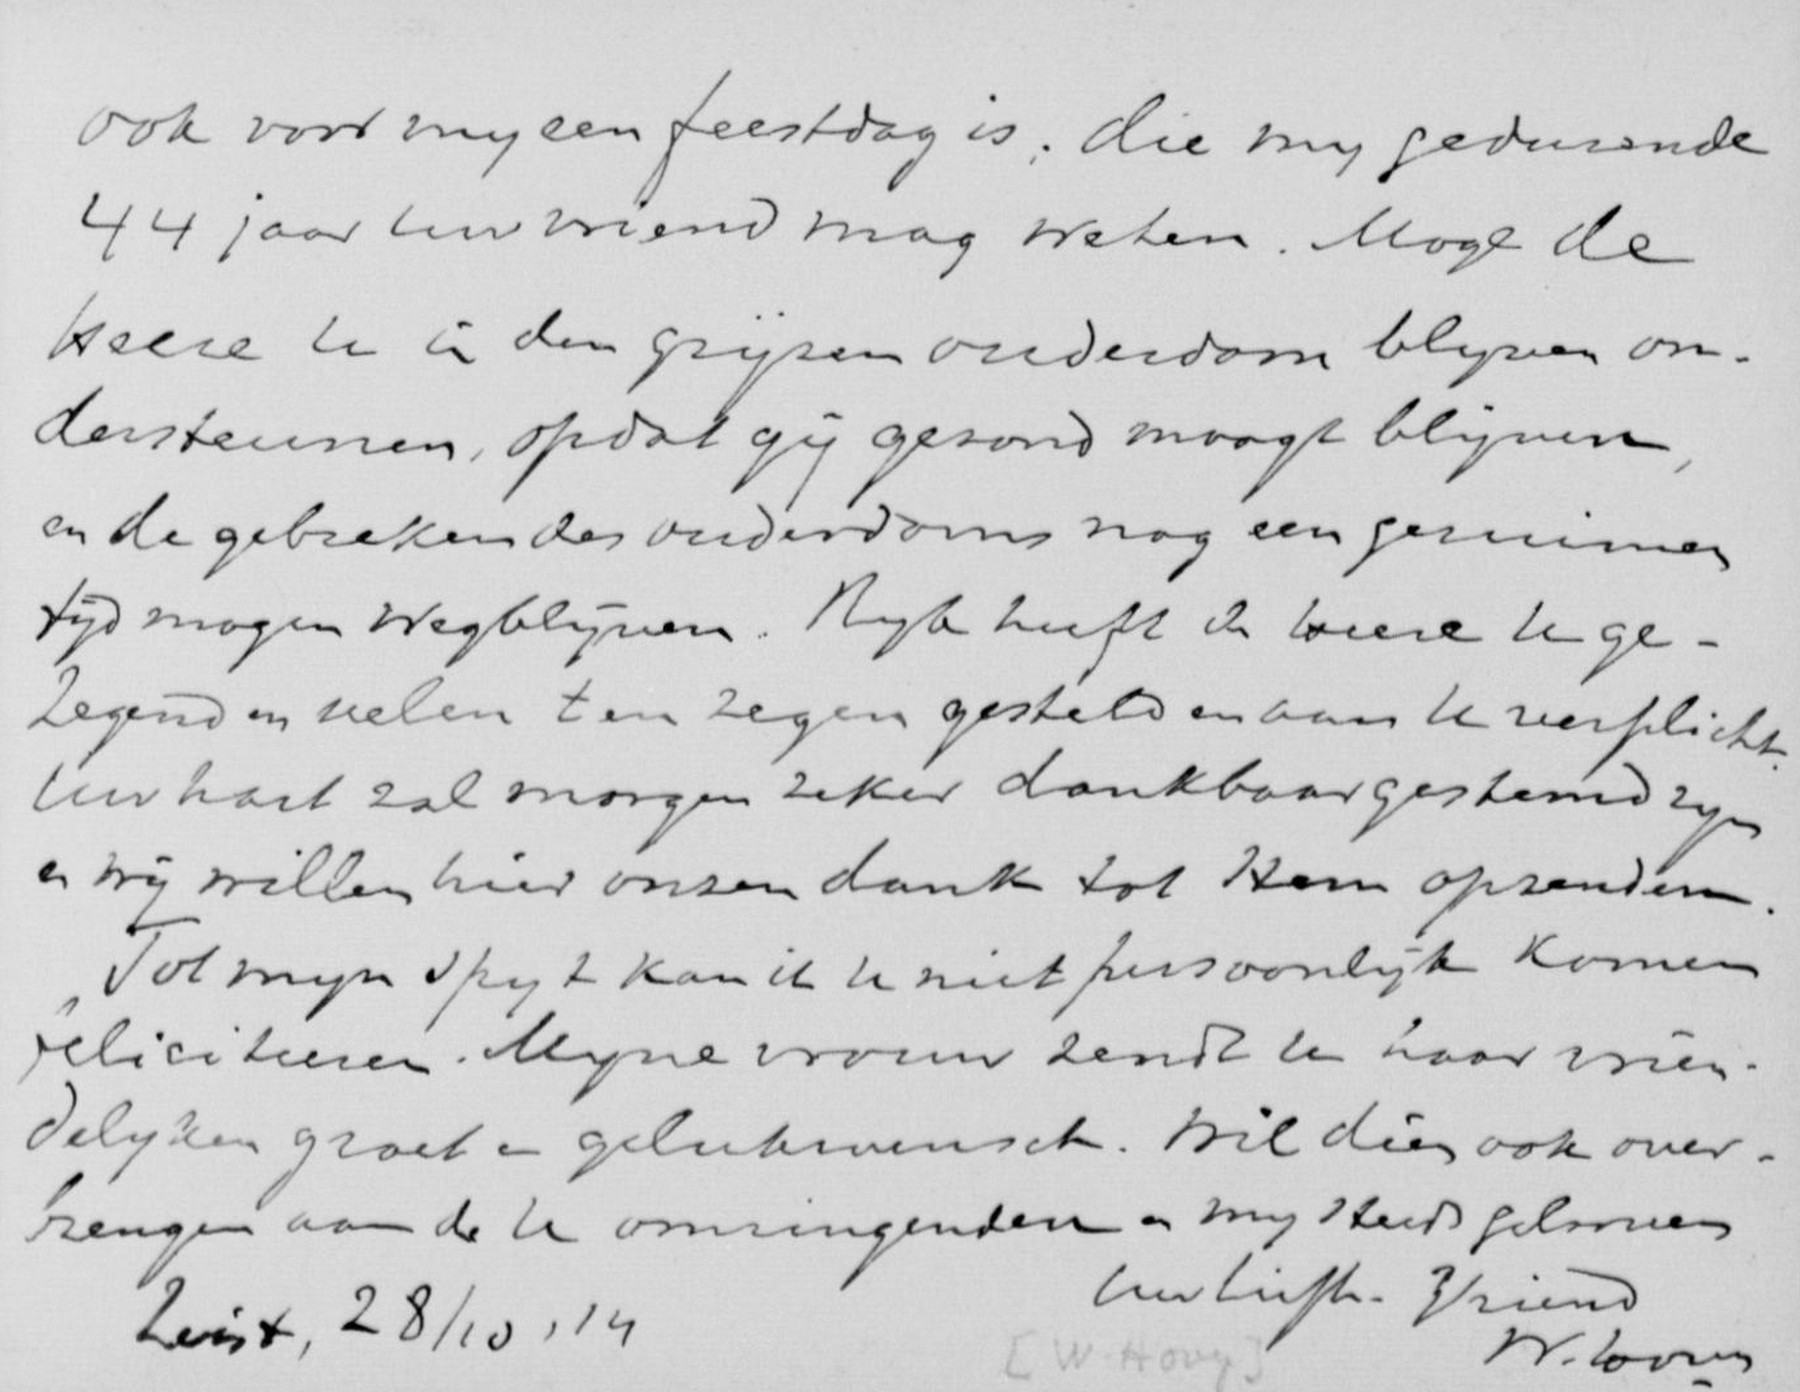 ook voor my een feestdag is, die my gedurende
44 jaar Uw vriend mag weten. Moge de
Heere U in den grijzen ouderdom blyven on-
dersteunen, opdat gij gezond moogt blijven,
en de gebreken des ouderdoms nog een geruimen
tijd mogen wegblijven. Ryk heeft de Heere U ge-
zegend en velen ten zegen gesteld en aan U verplicht.
Uw hart zal morgen zeker dankbaar gestemd zyn
en wij willen hier onzen dank tot Hem opzenden.
Tot myn spyt kan ik U niet persoonlijk komen
feliciteeren. Myne vrouw zendt U haar vrien-
delyken groet en gelukwensch. Wil dien ook over-
brengen aan de U omringenden en my steeds gelooven
Uw liefh. Vriend
Zeist, 28/10, 14
W. Hovy
[W. Hovy]